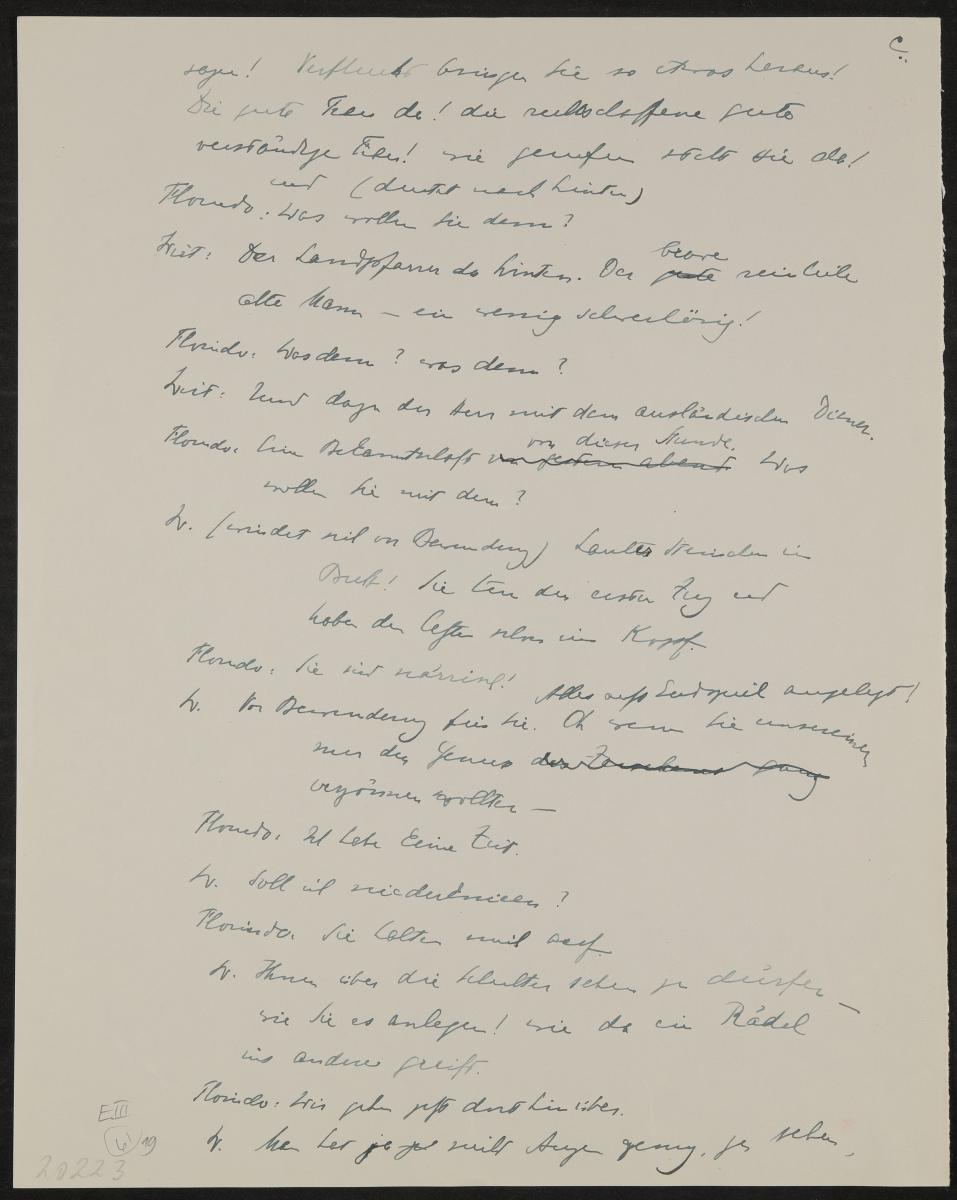 c.
sagen! Verflucht bringen Sie so etwas heraus!
Die gute Frau da! die rechtschaffene gute
verständige Frau! wie gerufen steht sie da!
und (deutet nach hinten)
Florindo: Was wollen Sie denn?
Wirt: Der Landpfarrer da hinten. Der brave gute
alte Mann – ein wenig schwerhörig!
Florindo: Was denn? was denn?
Wirt: Und dazu der Herr mit dem ausländischen Diener.
von dieser Stunde.
Florindo: Eine Bekanntschaft von gestern abend Was
wollen Sie mit dem?
W. (windet sich vor Bewunderung) Lauter Menschen im
Brett! Sie tun den ersten Zug und
haben den letzten schon im Kopf.
Florindo: Sie sind närrisch! Alles aufs Endspiel angelegt!
W. Vor Bewunderung für Sie. Oh wenn Sie unsereinem
nur den Genuss des Zusehens ganz
vergönnen wollten –
Florindo: Ich habe keine Zeit.
W. Soll ich niederknieen?
Florindo: Sie halten mich auf.
W. Ihnen über die Schulter sehen zu dürfen –
wie Sie es anlegen! wie da ein Rädel
ins andere greift.
Florindo: Wir gehen jetzt dort hinüber.
W. Man hat ja gar nicht Augen genug, zu sehen,
EIII
19
20223